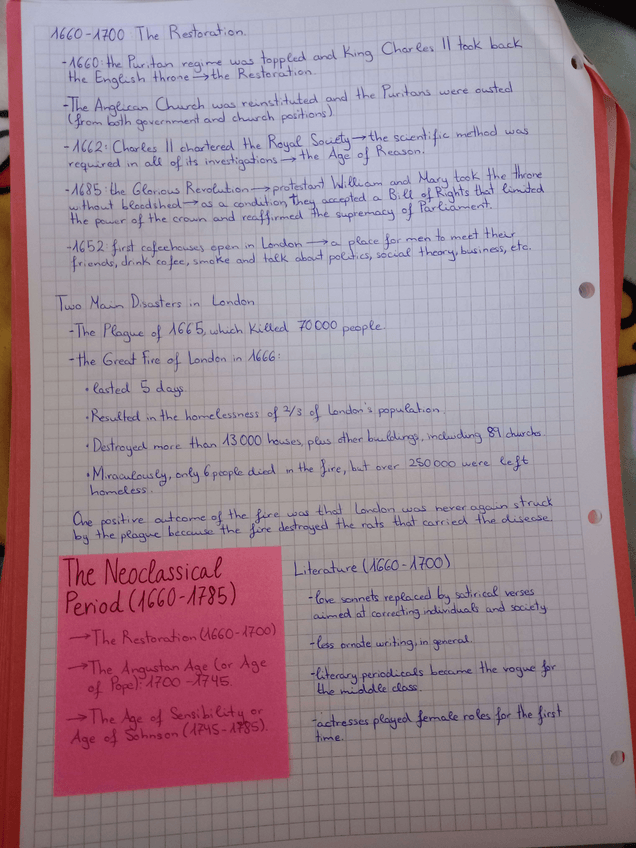 1660-1700 The Restoration
-1660: the Puritan regime was toppled and King Charles II took back
the English throne → the Restoration.
-The Anglican Church was reinstituted and the Puritans were ousted
(from both government and church positions)
-1662: Charles II chartered the Royal Society → the scientific method was
required in all of its investigations → the Age of Reason.
-1685: the Glorious Revolution → protestant William and Mary took the throne
without bloodshed → as a condution they accepted a Bill of Rights that limited
the power of the crown and reaffirmed the supremacy of Parliament.
-1652 first cofeehouses open in London → a place for men to meet their
friends, drink cofee, smoke and talk about politics, social theory, business, etc.
Two Main Disasters in London
-The Plague of 1665, which killed 70000 people.
-the Great Fire of London in 1666:
• lasted 5 days.
• Resulted in the homelessness of 2/3 of London's population.
• Destroyed more than 13000 houses, plus other buildings, including 89 churchs.
• Miraculously, only 6 people died in the fire, but over 250000 were left
homeless.
One positive outcome of the fire was that London was never again struck
by the plague because the fire destroyed the rats that carried the disease.
The Neoclassical
Period (1660-1785)
→ The Restoration (1660-1700)
→ The Angustan Age (or Age
of Pope): 1700-1745.
→ The Age of Sensibility or
Age of Johnson (1745-1785).
Literature (1660-1700)
-love sonnets replaced by satirical verses
aimed at correcting individuals and society
-less ornate writing, in general.
-literary periodicals became the vogue for
the middle class.
-actresses played female roles for the first
time.